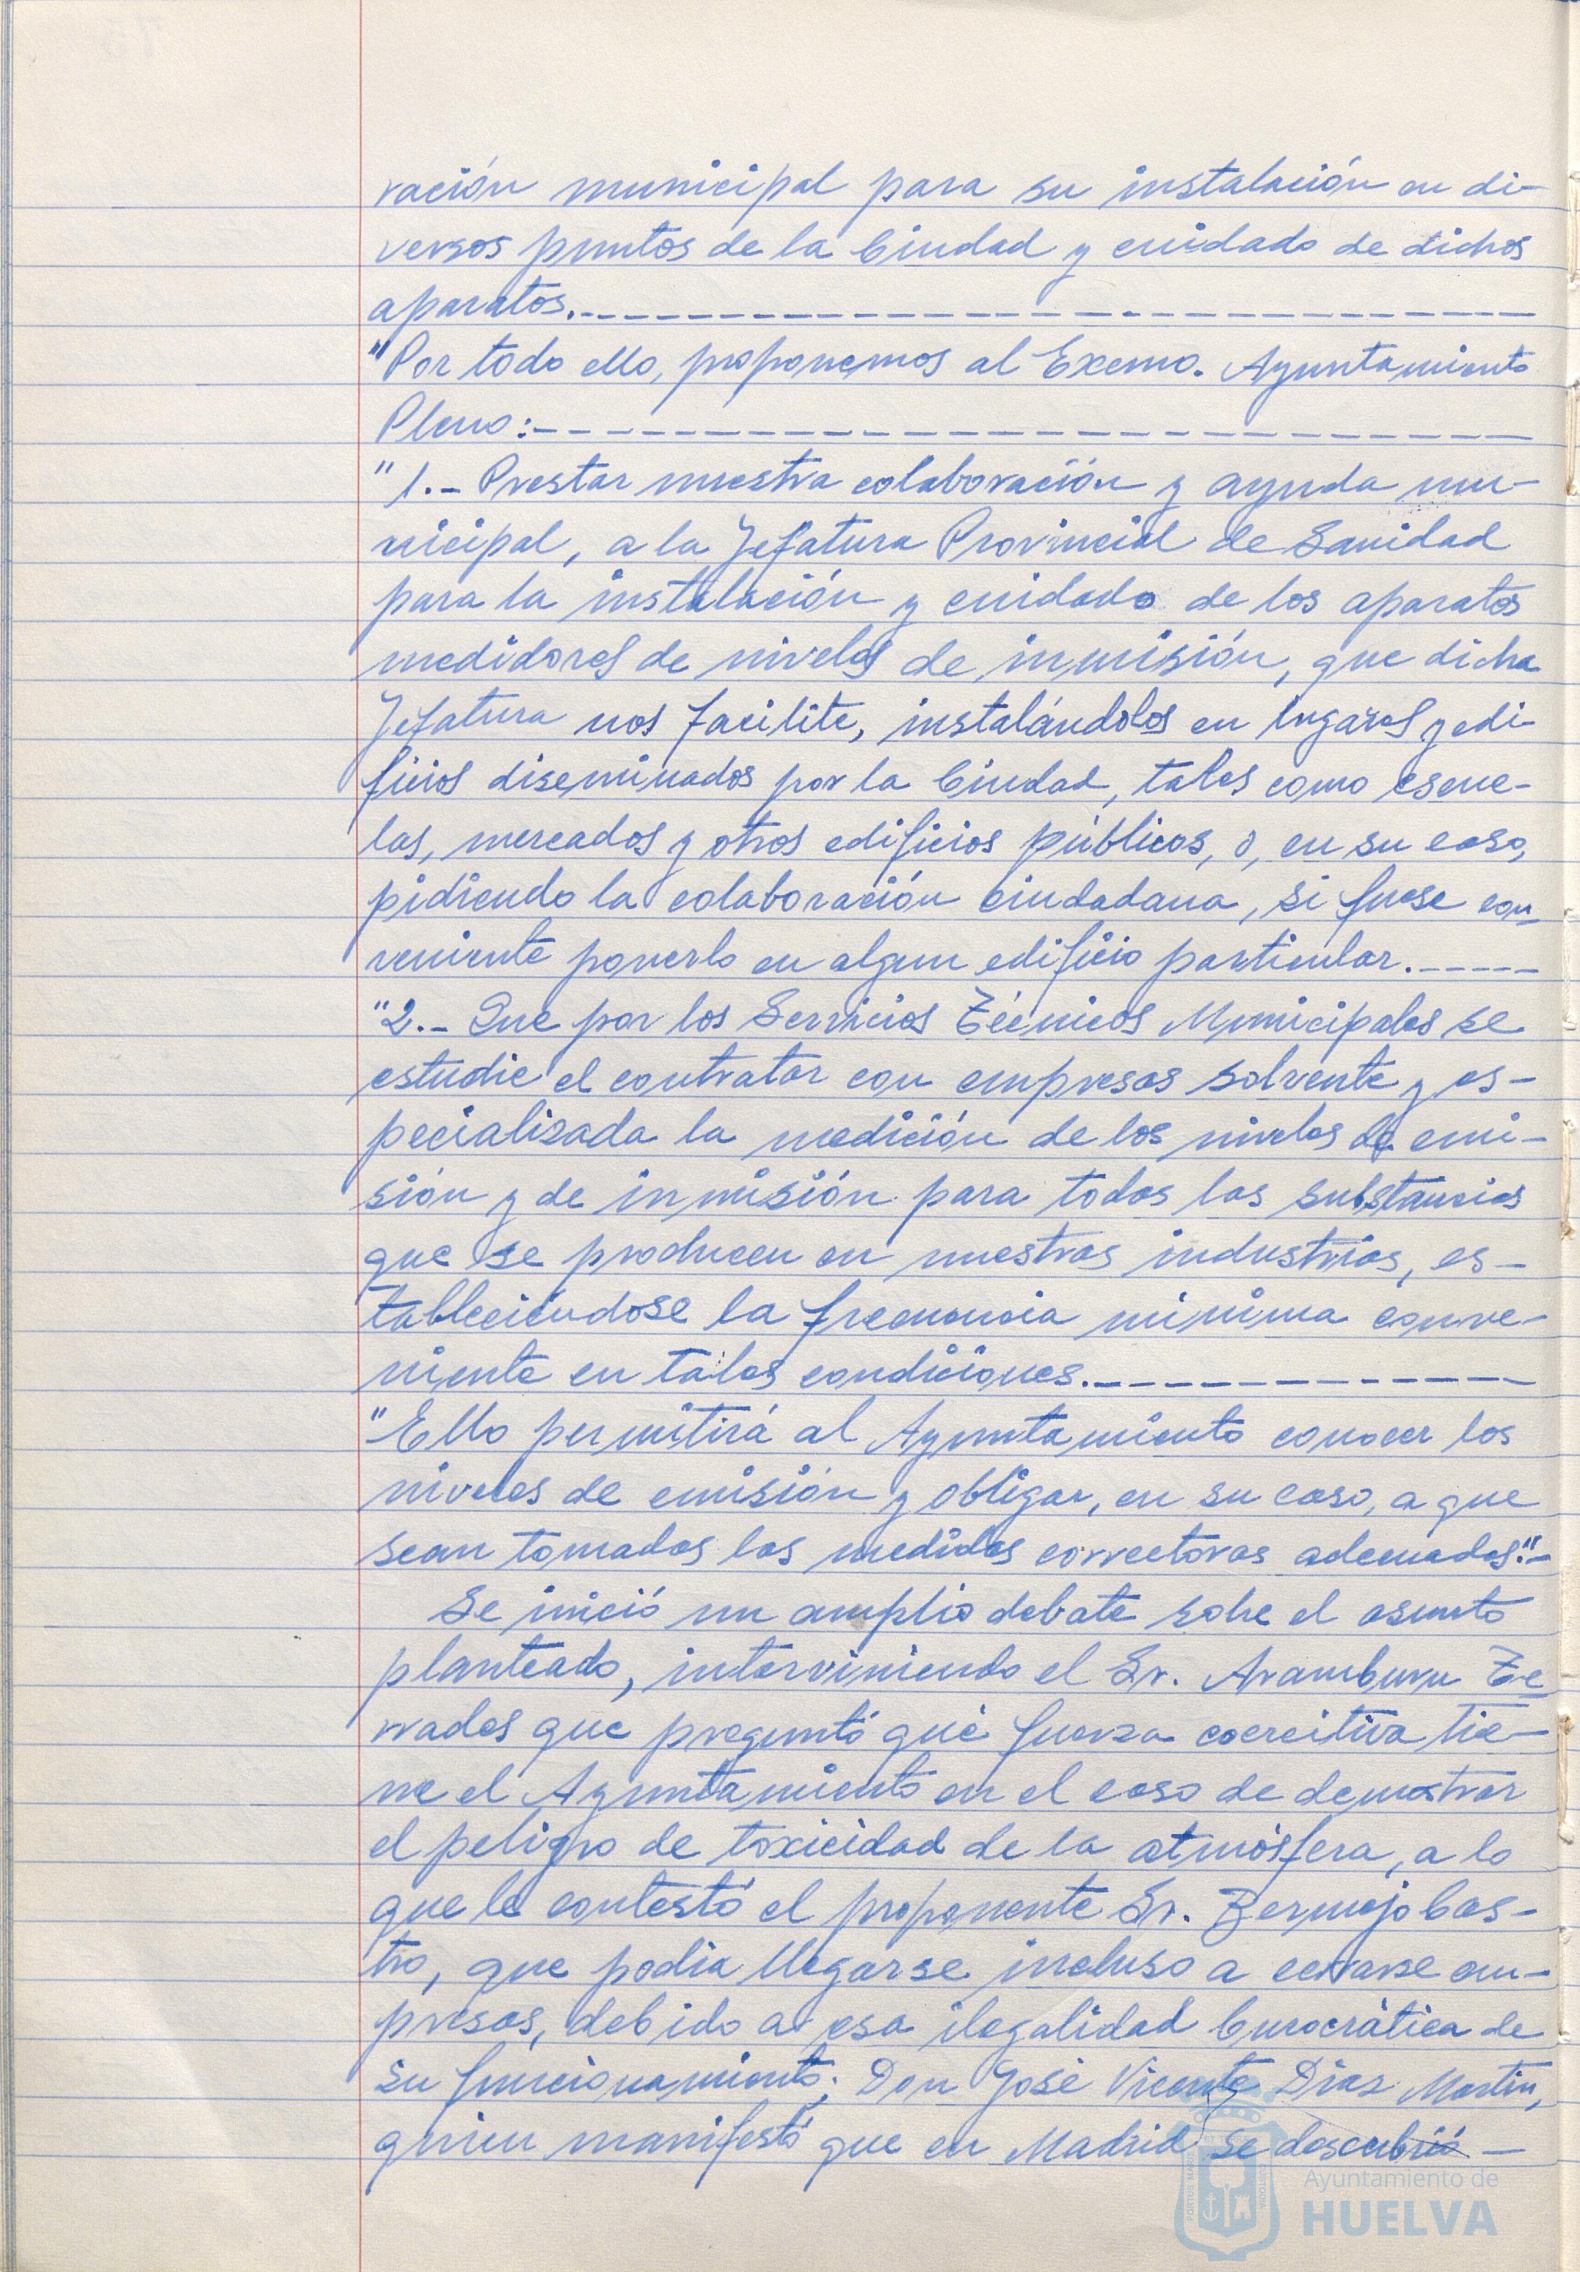 ración municipal para su instalación en di-
versos puntos de la Ciudad y cuidado de dichos
aparatos.
"Por todo ello, proponemos al Excmo. Ayuntamiento
Pleno:
"1.- Prestar nuestra colaboración y ayuda mu-
nicipal, a la Jefatura Provincial de Sanidad
para la instalación y cuidado de los aparatos
medidores de niveles de inmisión, que dicha
Jefatura nos facilite, instalándolos en lugares y edi-
ficios diseminados por la Ciudad, tales como escue-
las, mercados y otros edificios públicos, o, en su caso,
pidiendo la colaboración ciudadana, si fuese con-
veniente ponerlo en algun edificio particular.
"2.- Que por los Servicios Técnicos Municipales se
estudie el contratar con empresas solvente y es-
pecializada la medición de los niveles de emi-
sión y de inmisión para todas las substancias
que se producen en nuestras industrias, es-
tableciéndose la frecuencia minima conve-
niente en tales condiciones.
"Ello permitirá al Ayuntamiento conocer los
niveles de emisión y obligar, en su caso, a que
sean tomadas las medidas correctoras adecuadas."-
Se inició un amplio debate sobre el asunto
planteado, interviniendo el Sr. Aramburu Te
rrades que preguntó qué fuerza coercitiva tie-
ne el Ayuntamiento en el caso de demostrar
el peligro de toxicidad de la atmósfera, a lo
que le contestó el proponente Sr. Bermejo Cas-
tro, que podia llegarse incluso a cerrarse em-
presas, debido a esa ilegalidad burocrática de
su funcionamiento; Don José Vicente Díaz Martin,
quien manifestó que en Madrid se descubrió -
Ayuntamiento de
HUELVA